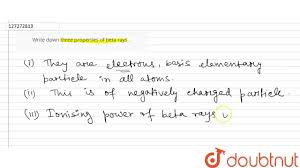 127272813
Write down three properties of beta rays
(I) They are electrons, basis elementary
particle in all atoms.
(II) This is of negatively charged particle.
(III) Ionising power of beta rays
doubtnut